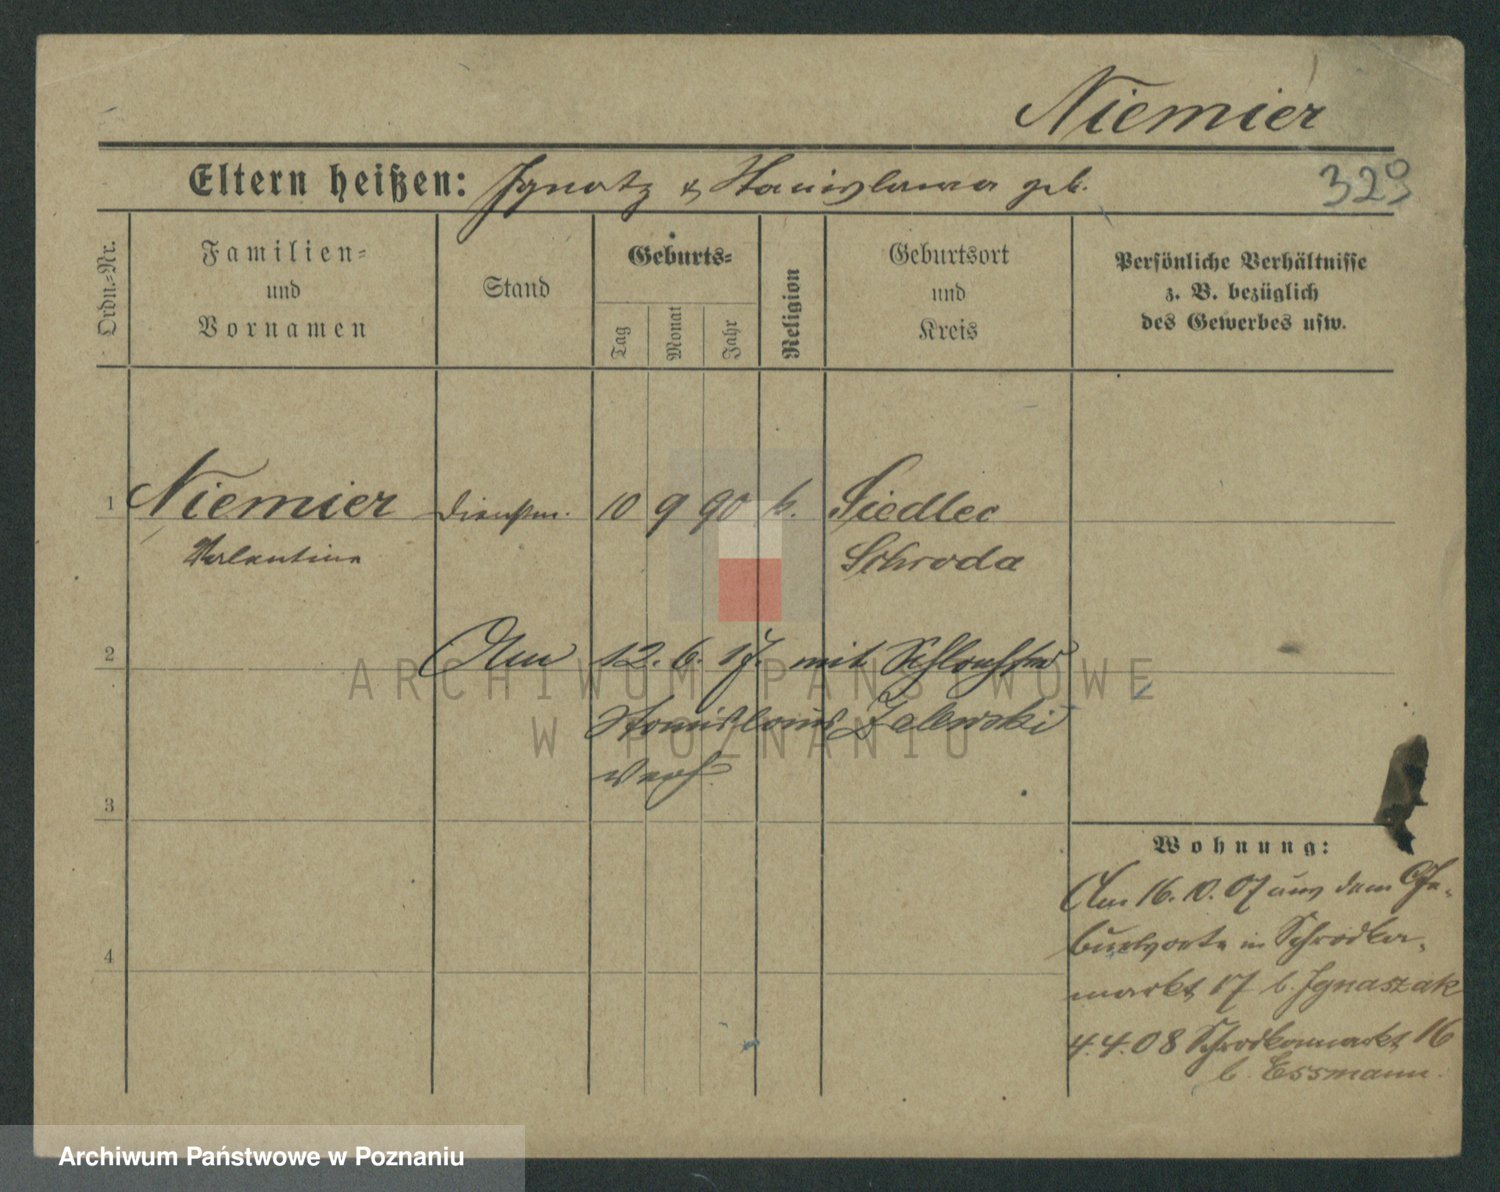 Niemier
Eltern heißen: Ignatz & Stanislawa geb.
329
Ordn.-Nr.
Familien-
und
Vornamen
Stand
Geburts-
Tag
Monat
Jahr
Religion
Geburtsort
und
Kreis
Persönliche Verhältnisse
z. B. bezüglich
des Gewerbes usw.
1 Niemier Dienstm. 10 9 90 k. Siedlec
Valentine Schroda
2 Am 12. 6. 17. mit
Stanislaus Zalewski
verh.
3
4
Wohnung:
Am 16. 10. 07 aus dem Ge-
burtsorte in Schrodka-
markt 17 b. Ignaszak
4.4.08 Schrodkamarkt 16
b. Essmann.
ARCHIWUM PAŃSTWOWE
W POZNANIU
Archiwum Państwowe w Poznaniu